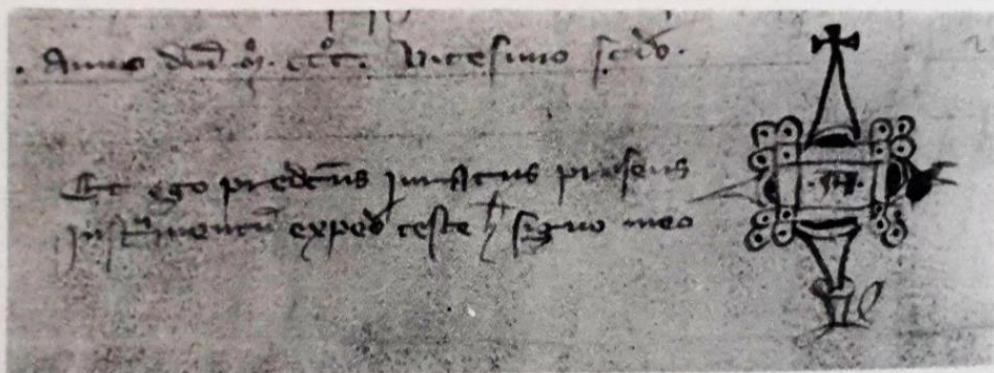 . Anno dñi mº. cccº. vicesimo scdo.
Et ego predcūs juratus presens
instrumentū exped teste h signo meo